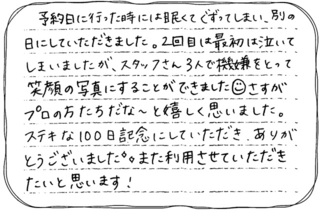 予約日に行った時には眠くてぐずってしまい、別の
日にしていただきました。2回目は最初は泣いて
しまいましたが、スタッフさん3人で機嫌をとって
笑顔の写真にすることができました☺さすが
プロの方たちだな〜と嬉しく思いました。
ステキな100日記念にしていただき、ありが
とうございました。また利用させていただき
たいと思います!